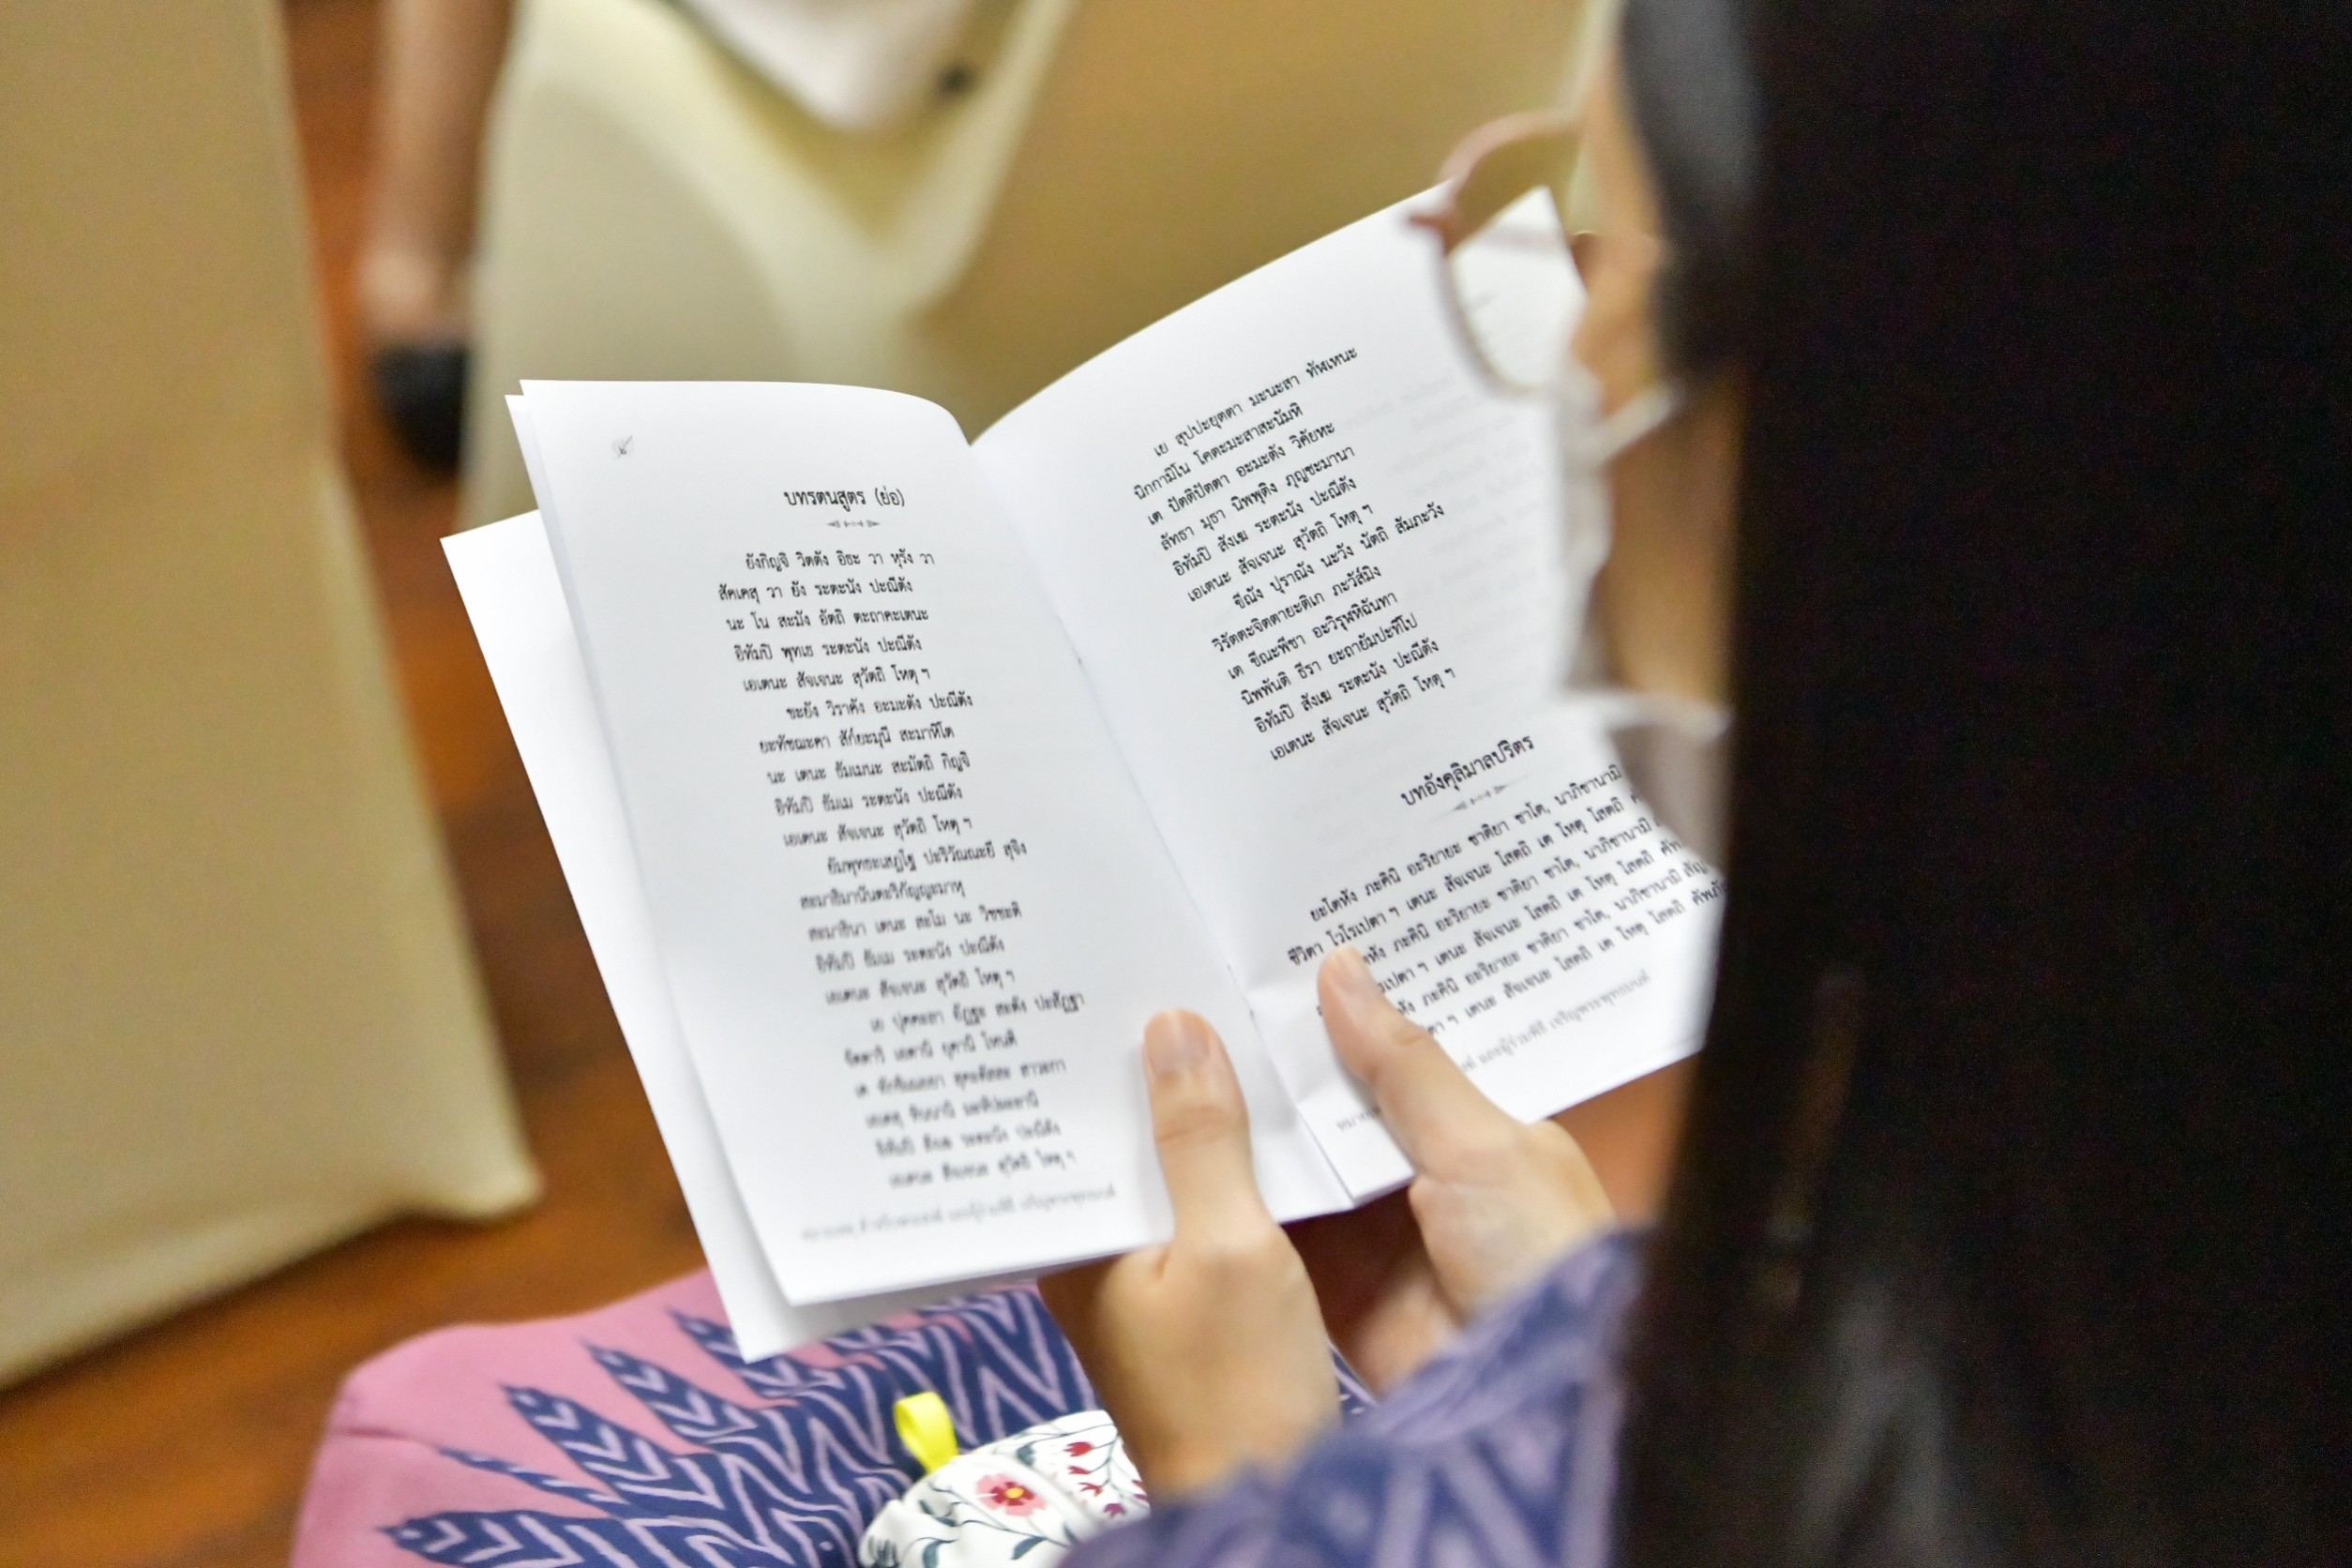 บทรตนสูตร (ย่อ)
ยังกิญจิ วิตตัง อิธะ วา หุรัง วา
สัคเคสุ วา ยัง ระตะนัง ปะณีตัง
นะ โน สะมัง อัตถิ ตะถาคะเตนะ
อิทัมปิ พุทเธ ระตะนัง ปะณีตัง
เอเตนะ สัจเจนะ สุวัตถิ โหตุ ฯ
ขะยัง วิราคัง อะมะตัง ปะณีตัง
ยะทัชฌะคา สักยะมุนี สะมาหิโต
นะ เตนะ ธัมเมนะ สะมัตถิ กิญจิ
อิทัมปิ ธัมเม ระตะนัง ปะณีตัง
เอเตนะ สัจเจนะ สุวัตถิ โหตุ ฯ
ยัมพุทธะเสฏโฐ ปะริวัณณะยี สุจิง
สะมาธิมานันตะริกัญญะมาหุ
สะมาธินา เตนะ สะโม นะ วิชชะติ
อิทัมปิ ธัมเม ระตะนัง ปะณีตัง
เอเตนะ สัจเจนะ สุวัตถิ โหตุ ฯ
เย ปุคคะลา อัฏฐะ สะตัง ปะสัฏฐา
จัตตาริ เอตานิ ยุคานิ โหนติ
เต ทักขิเณยยา สุคะตัสสะ สาวะกา
เอเตสุ ทินนานิ มะหัปผะลานิ
อิทัมปิ สังเฆ ระตะนัง ปะณีตัง
เอเตนะ สัจเจนะ สุวัตถิ โหตุ ฯ
เย สุปปะยุตตา มะนะสา ทัฬเหนะ
นิกกามิโน โคตะมะสาสะนัมหิ
เต ปัตติปัตตา อะมะตัง วิคัยหะ
ลัทธา มุธา นิพพุติง ภุญชะมานา
อิทัมปิ สังเฆ ระตะนัง ปะณีตัง
เอเตนะ สัจเจนะ สุวัตถิ โหตุ ฯ
ขีณัง ปุราณัง นะวัง นัตถิ สัมภะวัง
วิรัตตะจิตตายะติเก ภะวัส์มิง
เต ขีณะพีชา อะวิรุฬหิฉันทา
นิพพันติ ธีรา ยะถายัมปะทีโป
อิทัมปิ สังเฆ ระตะนัง ปะณีตัง
เอเตนะ สัจเจนะ สุวัตถิ โหตุ ฯ
บทอังคุลิมาลปริตร
ยะโตหัง ภะคินิ อะริยายะ ชาติยา ชาโต, นาภิชานามิ
ชีวิตา โวโรเปตา ฯ เตนะ สัจเจนะ โสตถิ เต โหตุ โสตถิ
ภะคินิ อะริยายะ ชาติยา ชาโต, นาภิชานามิ
ฯ เตนะ สัจเจนะ โสตถิ เต โหตุ โสตถิ
ภะคินิ อะริยายะ ชาติยา ชาโต, นาภิชานามิ
ฯ เตนะ สัจเจนะ โสตถิ เต โหตุ โสตถิ
และผู้ร่วมพิธี เจริญพระพุทธมนต์